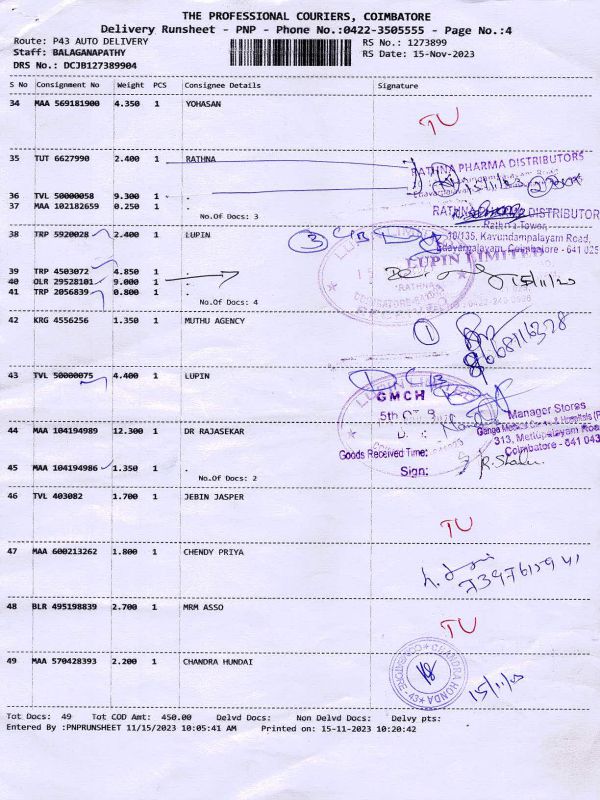 THE PROFESSIONAL COURIERS, COIMBATORE
Delivery Runsheet - PNP - Phone No.:0422-3505555 - Page No.:4
Route: P43 AUTO DELIVERY RS No.: 1273899
Staff: BALAGANAPATHY RS Date: 15-Nov-2023
DRS No.: DCJB127389904
S No Consignment No Weight PCS Consignee Details Signature
34 MAA 569181900 4.350 1 YOHASAN
TU
35 TUT 6627990 2.400 1 RATHNA
RATHNA PHARMA DISTRIBUTORS
36 TVL 50000058 9.300 1 .
37 MAA 102182659 0.250 1 .
No.Of Docs: 3
RATHNA DISTRIBUTOR
Rathna Tower,
38 TRP 5920028 2.400 1 LUPIN
3 CB
10/135, Kavundampalayam Road,
Edayarpalayam, Coimbatore - 641 025
LUPIN LIMITED
39 TRP 4503072 4.850 1 .
40 OLR 29528101 9.000 1 .
41 TRP 2056839 0.800 1 .
No.Of Docs: 4
"RATHNA"
15/11/23
42 KRG 4556256 1.350 1 MUTHU AGENCY
1
43 TVL 50000075 4.400 1 LUPIN
GMCH
Manager Stores
313, Mettupalayam Road
Coimbatore - 641 043
Goods Received Time:
Sign:
44 MAA 104194989 12.300 1 DR RAJASEKAR
45 MAA 104194986 1.350 1 .
No.Of Docs: 2
46 TVL 403082 1.700 1 JEBIN JASPER
TU
47 MAA 600213262 1.800 1 CHENDY PRIYA
48 BLR 495198839 2.700 1 MRM ASSO
TU
49 MAA 570428393 2.200 1 CHANDRA HUNDAI
CHANDRA HONDA
COIMBATORE-43
15/11/23
Tot Docs: 49 Tot COD Amt: 450.00 Delvd Docs: Non Delvd Docs: Delvy pts:
Entered By :PNPRUNSHEET 11/15/2023 10:05:41 AM Printed on: 15-11-2023 10:20:42